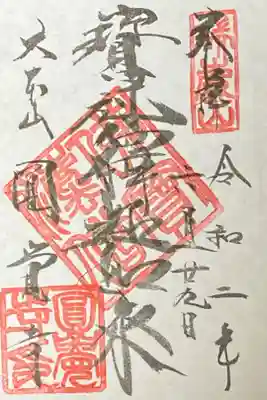 奉拝
令和二年
二月廿九日
寶冠釋迦如来
大本山
圓覚寺